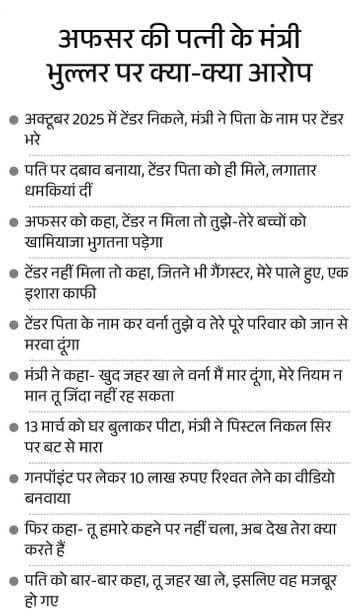 अफसर की पत्नी के मंत्री
भुल्लर पर क्या-क्या आरोप
अक्टूबर 2025 में टेंडर निकले, मंत्री ने पिता के नाम पर टेंडर
भरे
पति पर दबाव बनाया, टेंडर पिता को ही मिले, लगातार
धमकियां दीं
अफसर को कहा, टेंडर न मिला तो तुझे-तेरे बच्चों को
खामियाजा भुगतना पड़ेगा
टेंडर नहीं मिला तो कहा, जितने भी गैंगस्टर, मेरे पाले हुए, एक
इशारा काफी
टेंडर पिता के नाम कर वर्ना तुझे व तेरे पूरे परिवार को जान से
मरवा दूंगा
मंत्री ने कहा- खुद जहर खा ले वर्ना मैं मार दूंगा, मेरे नियम न
मान तू जिंदा नहीं रह सकता
13 मार्च को घर बुलाकर पीटा, मंत्री ने पिस्टल निकल सिर
पर बट से मारा
गनपॉइंट पर लेकर 10 लाख रुपए रिश्वत लेने का वीडियो
बनवाया
फिर कहा- तू हमारे कहने पर नहीं चला, अब देख तेरा क्या
करते हैं
पति को बार-बार कहा, तू जहर खा ले, इसलिए वह मजबूर
हो गए